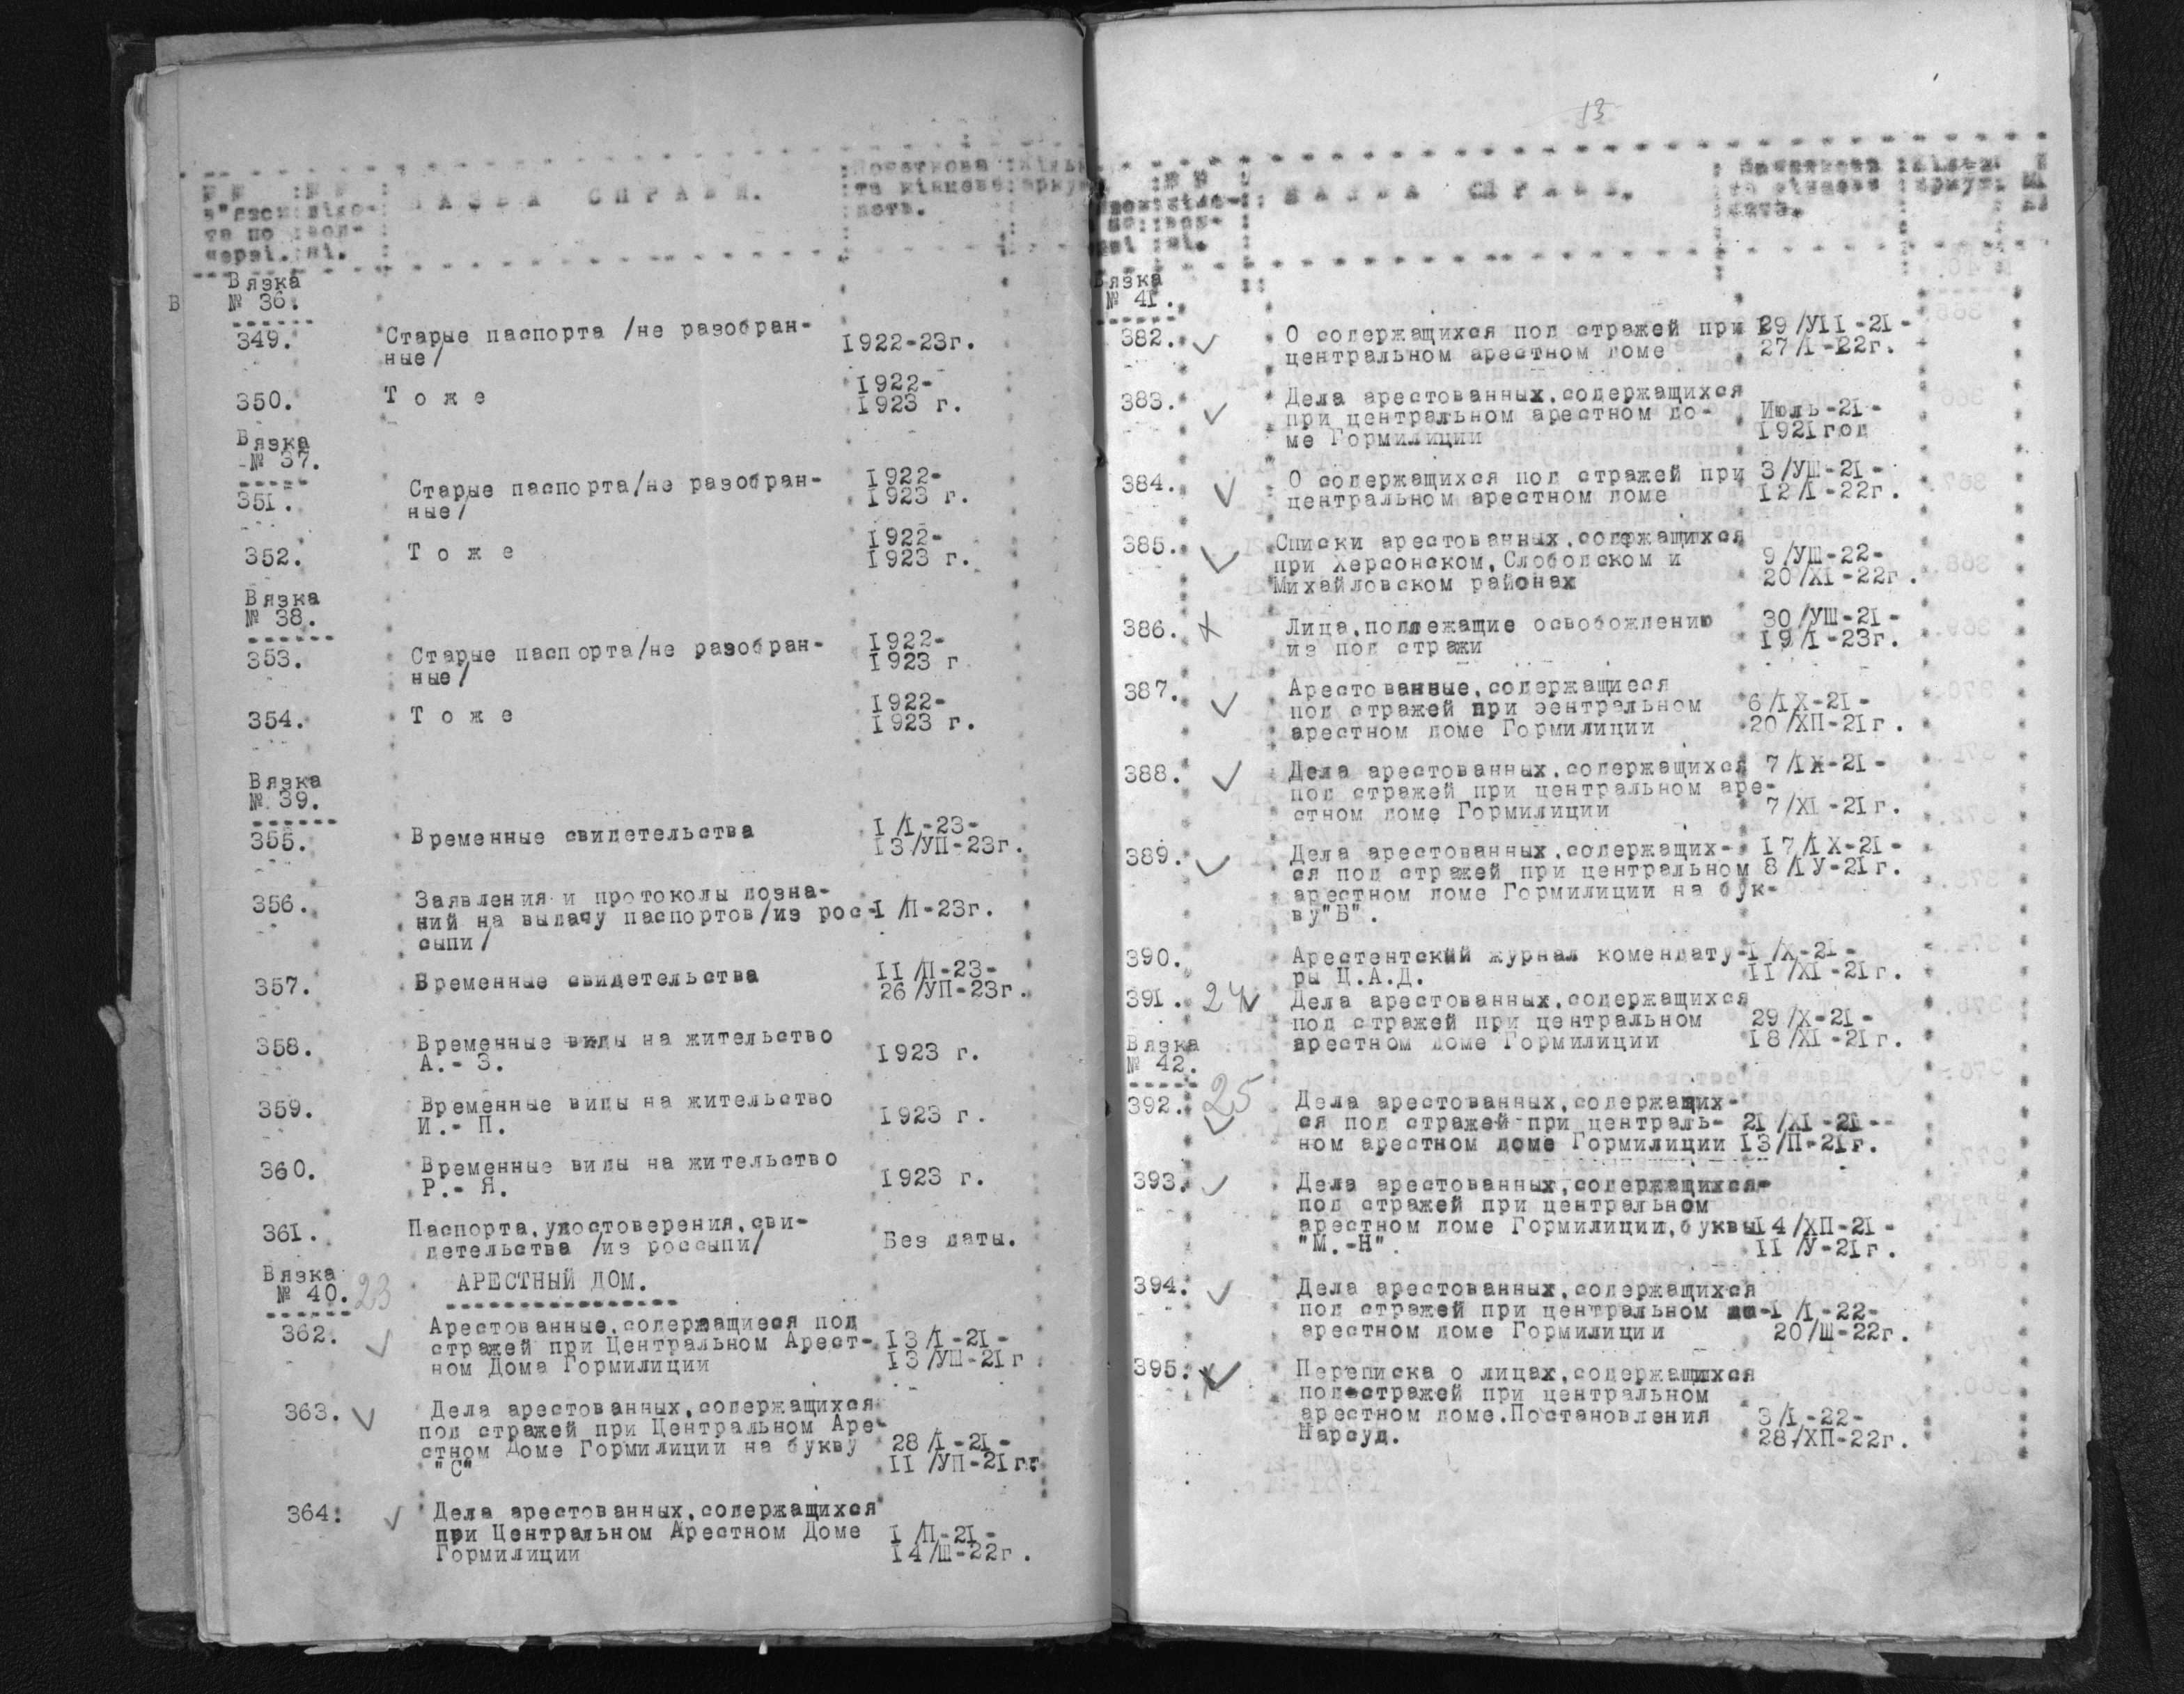 № №
№ №
НАЗВА СПРАВИ.
Початкова
та кінцева
дата.
в"язок
та по
черзі.
Вязка
№ 36.
349.
Старые паспорта /не разобран-
ные/
1922-23г.
350.
Т о ж е
1922-
1923 г.
Вязка
№ 37.
351.
Старые паспорта/не разобран-
ные/
1922-
1923 г.
352.
Т о ж е
1922-
1923 г.
Вязка
№ 38.
353.
Старые паспорта/не разобран-
ные/
1922-
1923 г
354.
Т о ж е
1922-
1923 г.
Вязка
№ 39.
355.
Временные свидетельства
I/I-23-
I3/УП-23г.
356.
Заявления и протоколы дозна-
ний на выдачу паспортов/из рос-
сыпи/
I/П-23г.
357.
Временные свидетельства
II/П-23-
26/УП-23г.
358.
Временные виды на жительство
А.- З.
1923 г.
359.
Временные виды на жительство
И.- П.
1923 г.
360.
Временные виды на жительство
Р.- Я.
1923 г.
361.
Паспорта,удостоверения,сви-
детельства /из россыпи/
Без даты.
Вязка
№ 40. 23
АРЕСТНЫЙ ДОМ.
362.
Арестованные,содержащиеся под
стражей при Центральном Арест-
ном Дома Гормилиции
I3/I-2I-
I3/УШ-2Iг
363.
Дела арестованных,содержащихся
под стражей при Центральном Аре-
стном Доме Гормилиции на букву
"С"
28/I-2I-
II/УП-2Iгг
364.
Дела арестованных,содержащихся
при Центральном Арестном Доме
Гормилиции
I/П-2I-
I4/Ш-22г.
13
НАЗВА СПРАВИ.
Початкова
та кінцева
дата.
Вязка
№ 4I.
382.
О содержащихся под стражей при
центральном арестном доме
29/УII-2I-
27/I-22г.
383.
Дела арестованных,содержащихся
при центральном арестном до-
ме Гормилиции
Июль-2I-
I92Iгод
384.
О содержащихся под стражей при
центральном арестном доме
3/УШ-2I-
I2/I-22г.
385.
Списки арестованных,содержащихся
при Херсонском,Слободском и
Михайловском районах
9/УШ-22-
20/XI-22г.
386.
Лица,подлежащие освобождению
из под стражи
30/УШ-2I-
I9/I-23г.
387.
Арестованные,содержащиеся
под стражей при зентральном
арестном доме Гормилиции
6/IX-2I-
20/ХП-2Iг.
388.
Дела арестованных,содержащихся
под стражей при центральном аре-
стном доме Гормилиции
7/IX-2I-
7/XI-2Iг.
389.
Дела арестованных,содержащих-
ся под стражей при центральном
арестном доме Гормилиции на бук-
ву"Б".
I7/IX-2I-
8/IУ-2Iг.
390.
Арестентский журнал комендату-
ры Ц.А.Д.
I/X-2I-
II/XI-2Iг.
391. 24
Дела арестованных,содержащихся
под стражей при центральном
арестном доме Гормилиции
29/X-2I-
I8/XI-2Iг.
Вязка
№ 42.
392. 25
Дела арестованных,содержащих-
ся под стражей при централь-
ном арестном доме Гормилиции
2I/XI-2I--
I3/П-2Iг.
393.
Дела арестованных,содержащихся
под стражей при центральном
арестном доме Гормилиции,буквы
"М.-Н".
I4/ХП-2I-
II/У-2Iг.
394.
Дела арестованных,содержащихся
под стражей при центральном
арестном доме Гормилиции
I/I-22-
20/Ш-22г.
395.
Переписка о лицах,содержащихся
под стражей при центральном
арестном доме.Постановления
Нарсуд.
3/I-22-
28/ХП-22г.